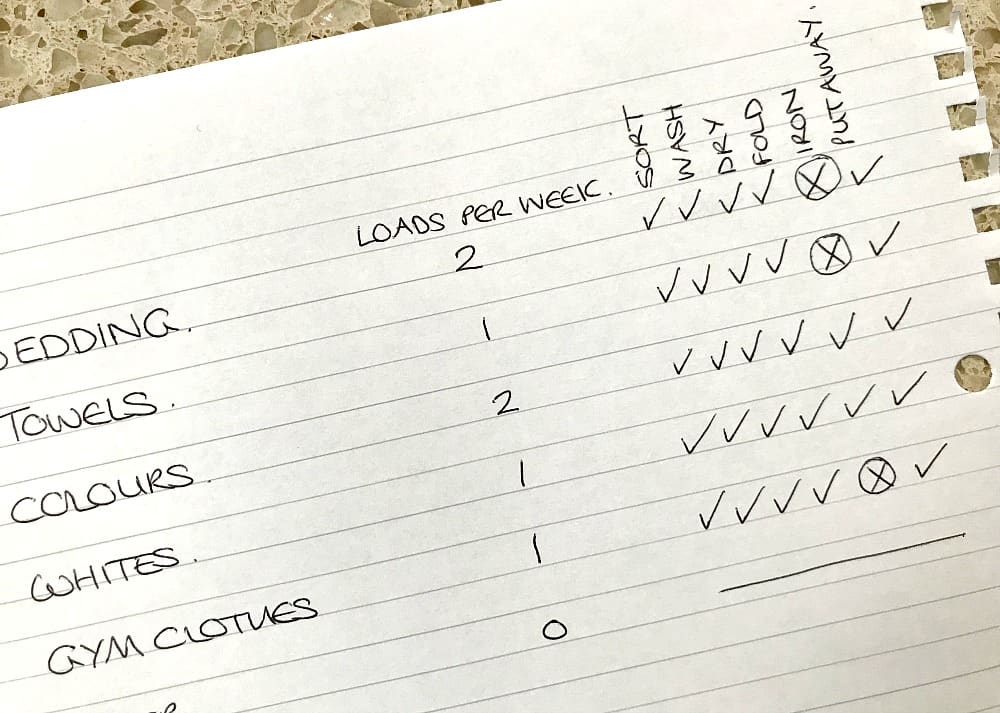 SORT WASH DRY FOLD IRON PUT AWAY.
LOADS PER WEEK.
EDDING. 2 ✓ ✓ ✓ ✓ ⓧ ✓
TOWELS. 1 ✓ ✓ ✓ ✓ ⓧ ✓
COLOURS. 2 ✓ ✓ ✓ ✓ ✓ ✓
WHITES. 1 ✓ ✓ ✓ ✓ ✓ ✓
GYM CLOTHES 1 ✓ ✓ ✓ ✓ ⓧ ✓
0